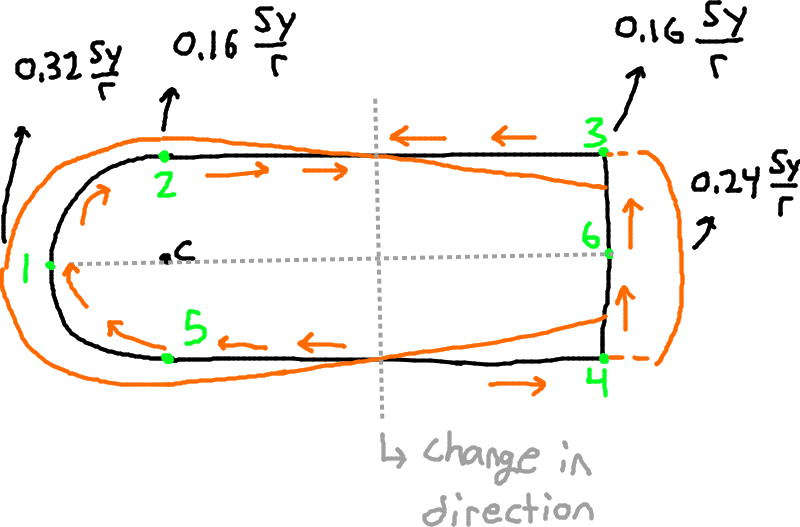 0.32 Sy/r
0.16 Sy/r
0.16 Sy/r
3
2
0.24 Sy/r
6
1
c
5
4
↳ change in
direction